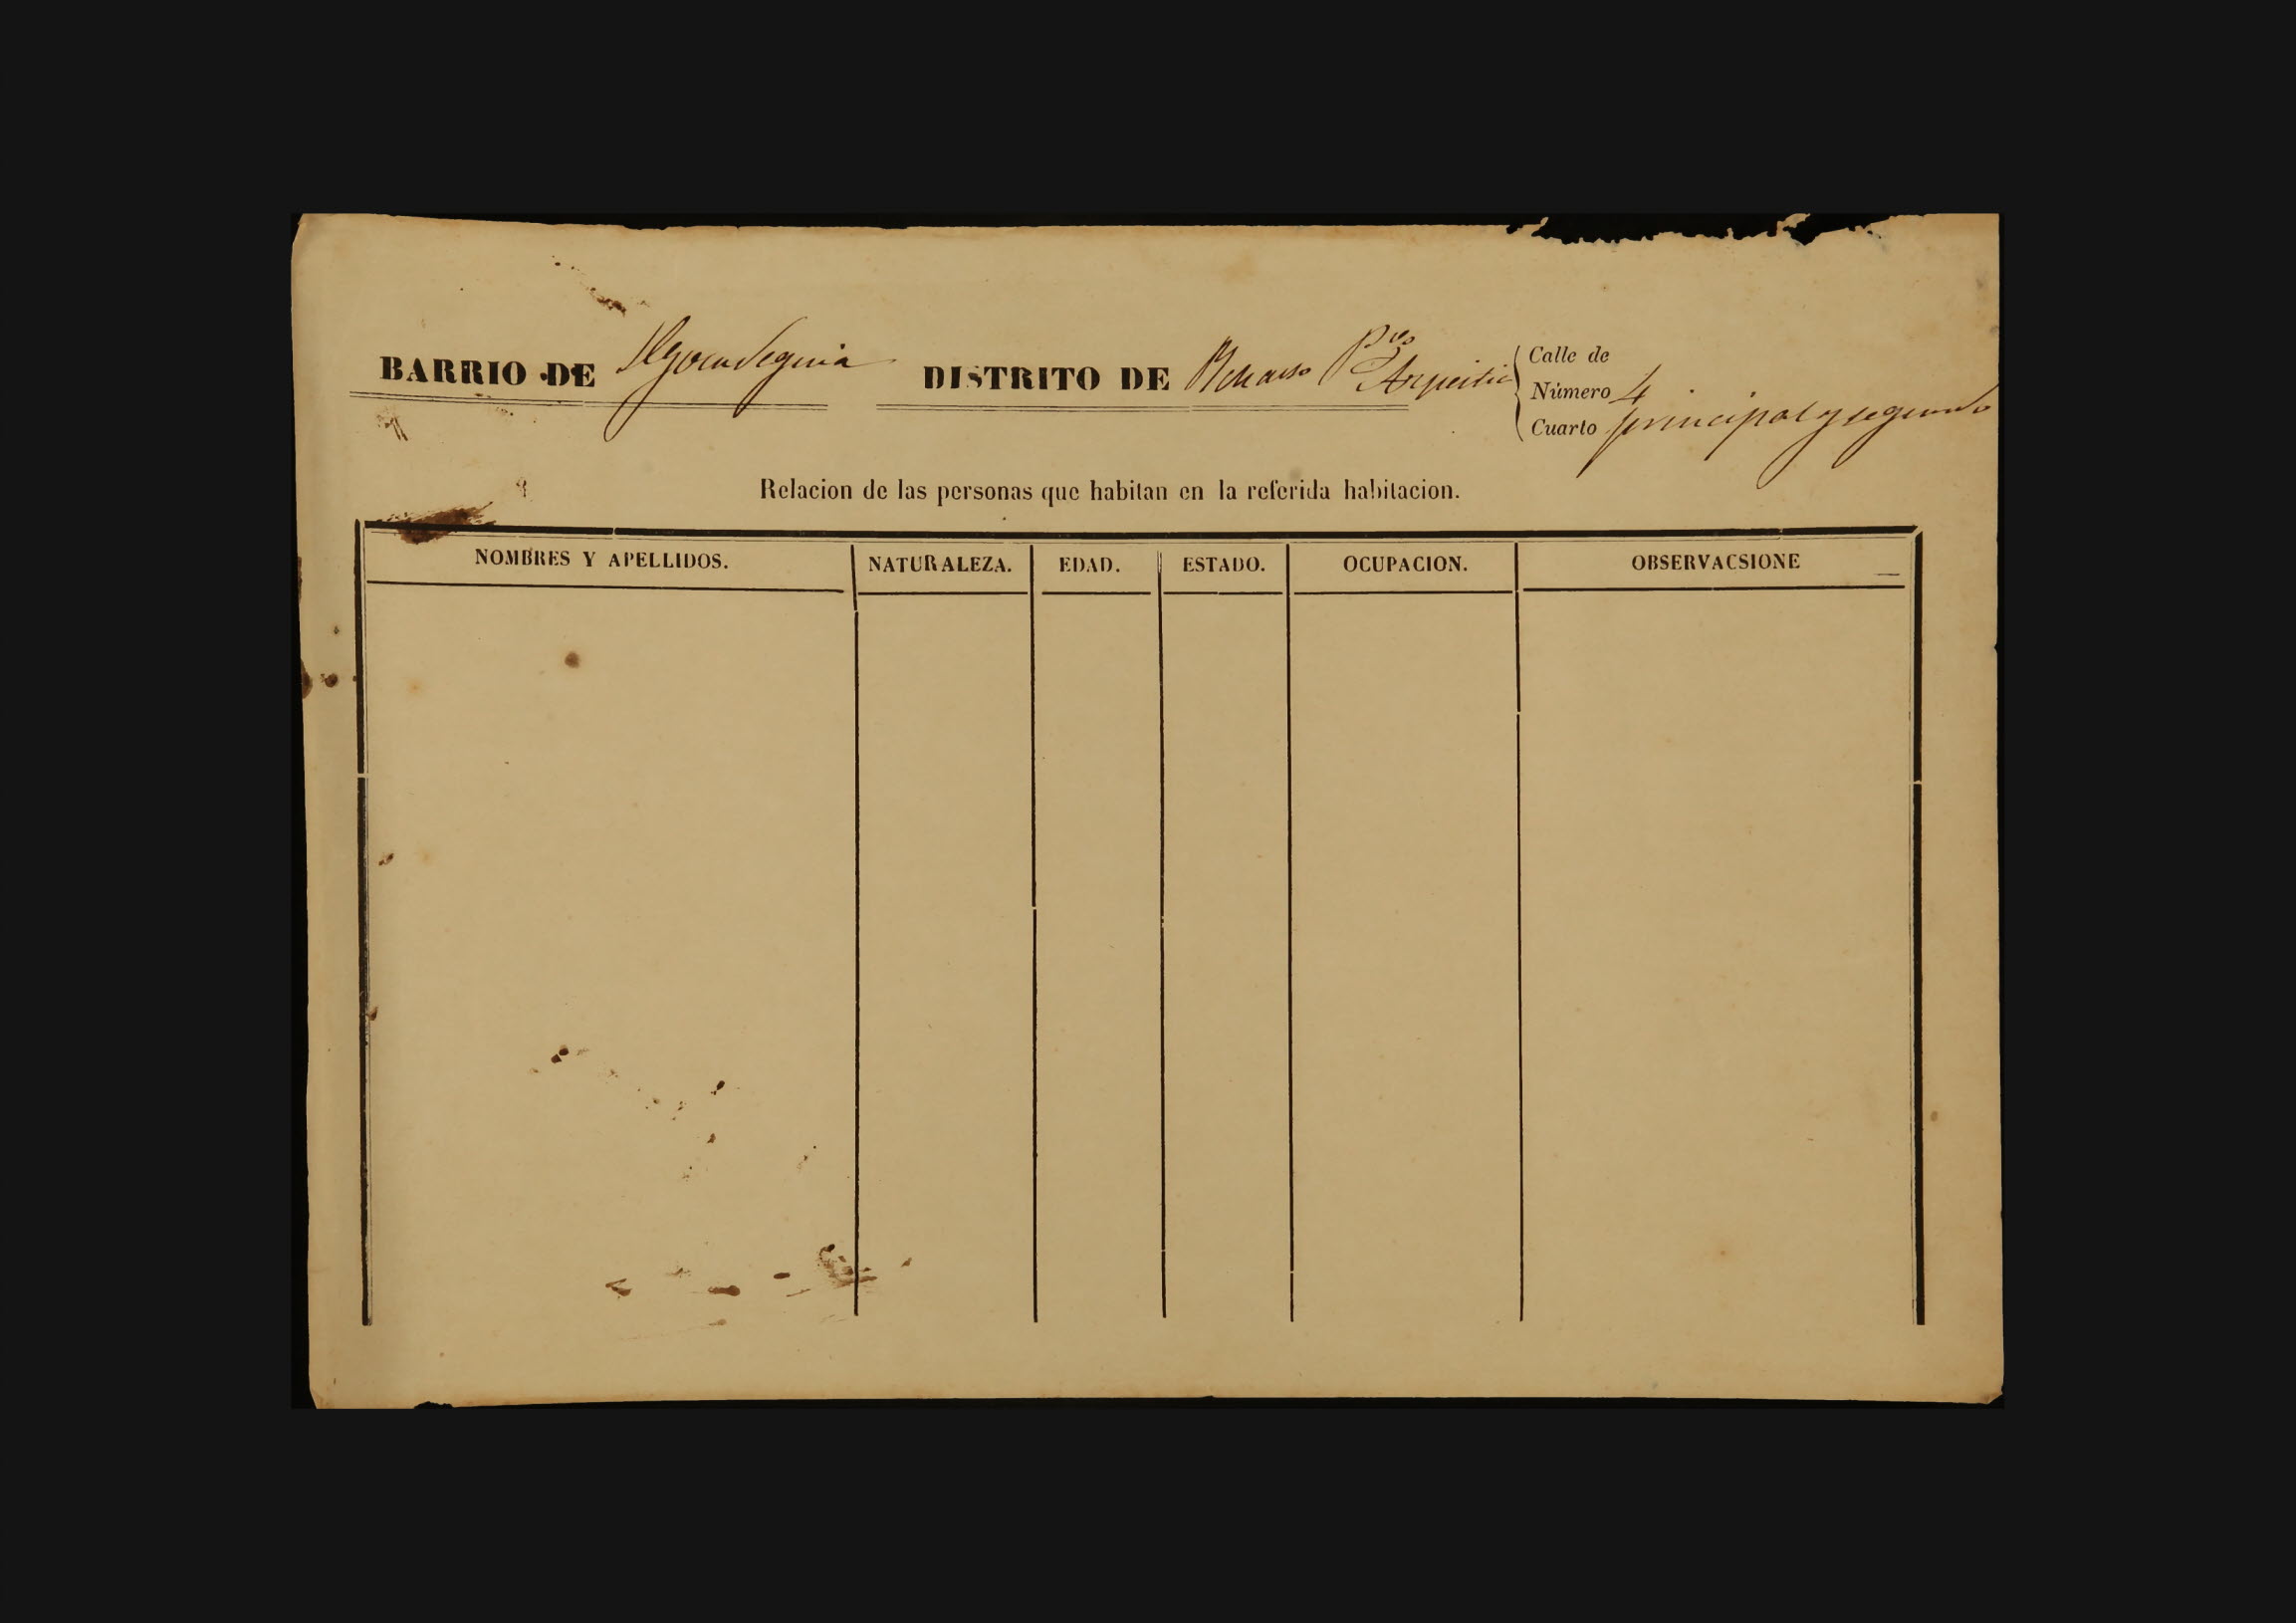 BARRIO DE DISTRITO DE
Calle de
Número 4
Cuarto principal y segundo
Relacion de las personas que habitan en la referida habitacion.
NOMBRES Y APELLIDOS. NATURALEZA. EDAD. ESTADO. OCUPACION. OBSERVACSIONE